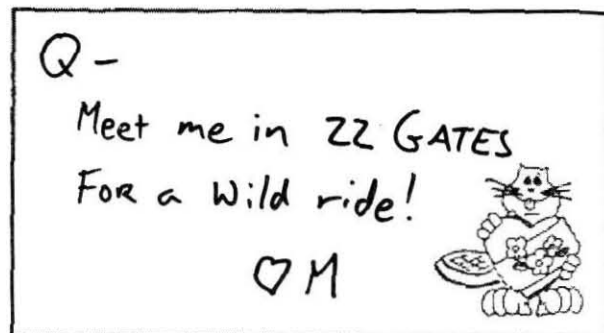 Q-
Meet me in 22 GATES
FOR a wild ride!
♡ M